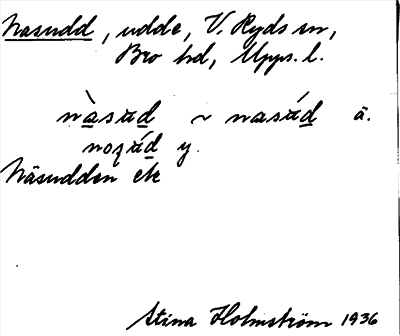 Nasudd, udde, V. Ryds sn,
Bro hd, Upps. l.
nàsud ~ nasúd ä.
nozúd y.
Näsudden ek
Stina Holmström 1936